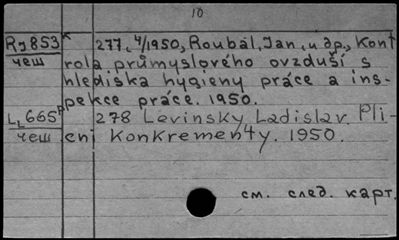 10
Rj853к 277, 4/1950, Roubal, Jan, и др., Kont
чеш rola průmyslového ovzduší s
hlediska hygieny práce a ins-
pekce práce. 1950.
LL665р 278 Levinský Ladislav. Pli-
чеш cní konkrementy. 1950.
см. след. карт.